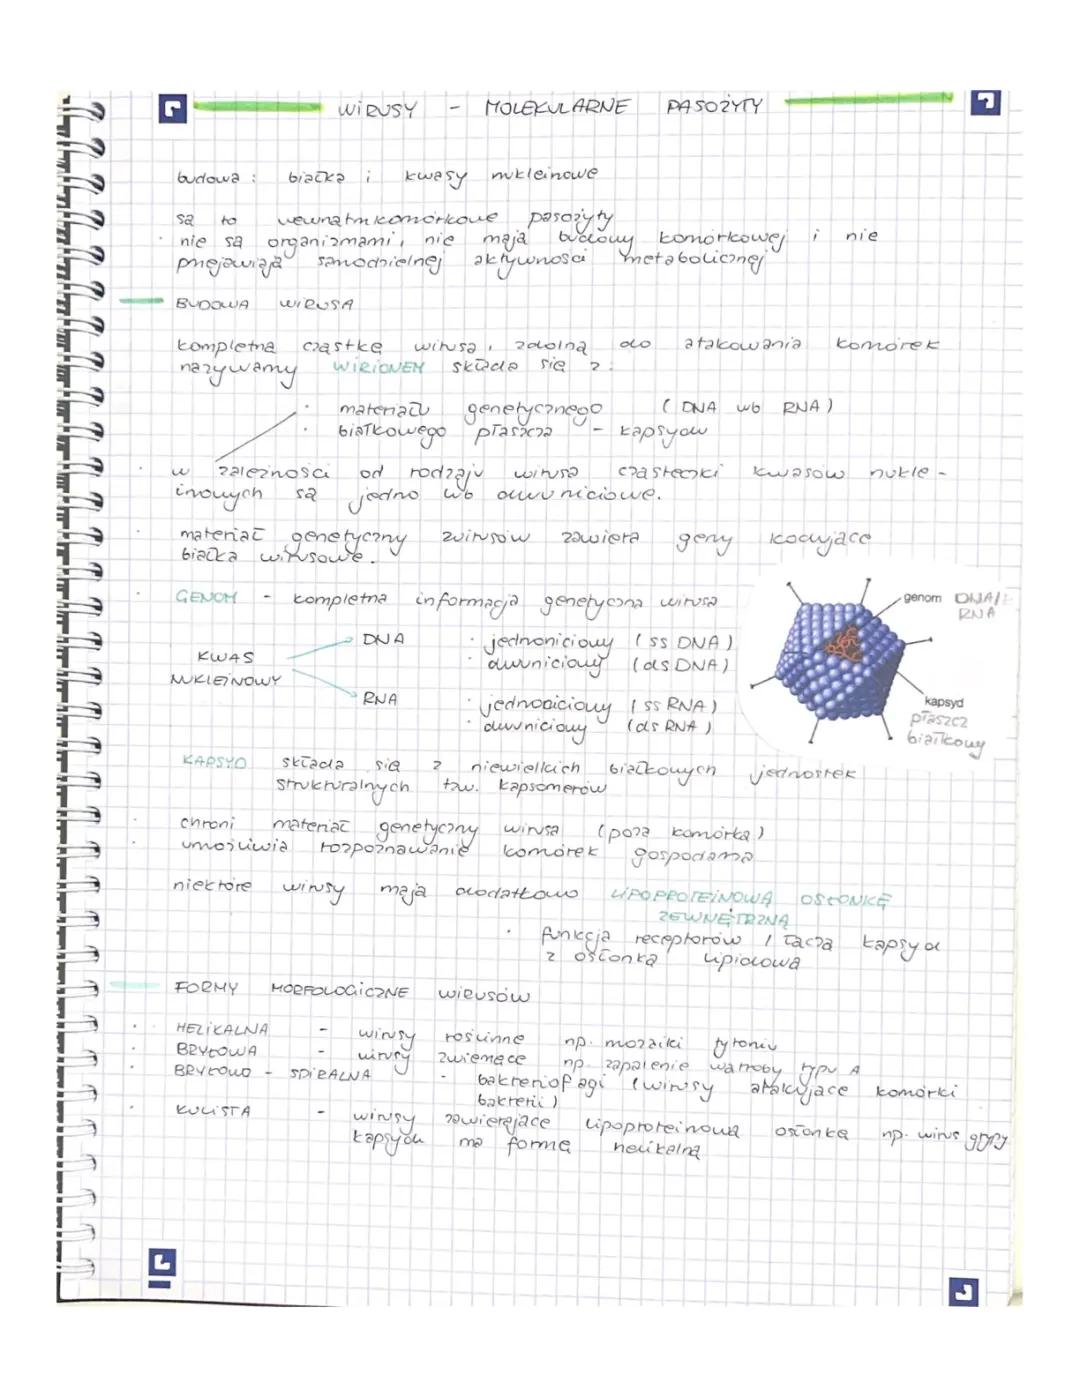 WIRUSY - MOLEKULARNE PASOŻYTY
budowa : białka i kwasy nukleinowe
są to wewnątrzkomórkowe pasożyty
· nie są organizmami, nie mają budowy komórkowej i nie
przejawiają samodzielnej aktywności metabolicznej
BUDOWA WIRUSA
kompletną cząstkę wirusa, zdolną do atakowania komórek
nazywamy WIRIONEM składa się z:
· materiału genetycznego ( DNA lub RNA )
· białkowego płaszcza - kapsydu
· w zależności od rodzaju wirusa cząsteczki kwasów nukle-
inowych są jedno lub dwuniciowe.
· materiał genetyczny wirusów zawiera geny kodujące
białka wirusowe.
· GENOM - kompletna informacja genetyczna wirusa
genom DNA/
RNA
DNA · jednoniciowy ( ss DNA )
KWAS · dwuniciowy ( ds DNA )
NUKLEINOWY
RNA · jednoniciowy ( ss RNA )
· dwuniciowy ( ds RNA )
kapsyd
płaszcz
białkowy
KAPSYD składa się z niewielkich białkowych jednostek
strukturalnych tzw. kapsomerów
· chroni materiał genetyczny wirusa ( poza komórką )
· umożliwia rozpoznawanie komórek gospodarza
niektóre wirusy mają dodatkowo LIPOPROTEINOWĄ OSŁONKĘ
ZEWNĘTRZNĄ
· funkcja receptorów / łączą kapsyd
z osłonką lipidową
FORMY MORFOLOGICZNE WIRUSÓW
· HELIKALNA - wirusy roślinne np. mozaiki tytoniu
· BRYŁOWA - wirusy zwierzęce np. zapalenie wątroby typu A
· BRYŁOWO - SPIRALNA - bakteriofagi ( wirusy atakujące komórki
bakterii )
· KULISTA - wirusy zawierające lipoproteinową osłonkę np. wirus grypy
kapsyd ma formę helikalną